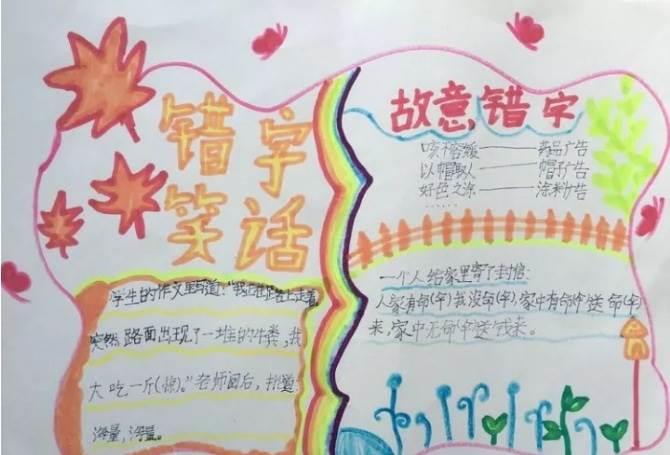 错字
笑话
学生的作文里写道:"我正在路上走着,
突然路面出现了一堆的牛粪,我
大吃一斤(惊)。"老师阅后,批道:
海量,海量。
故意错字
咳不容缓——药品广告
以帽取人——帽子广告
好色之涂——涂料广告
……
一个人给家里寄了封信:
人家有命(伞),我没命(伞),家中有命(伞)送命(伞)
来,家中无命(伞)送钱来。